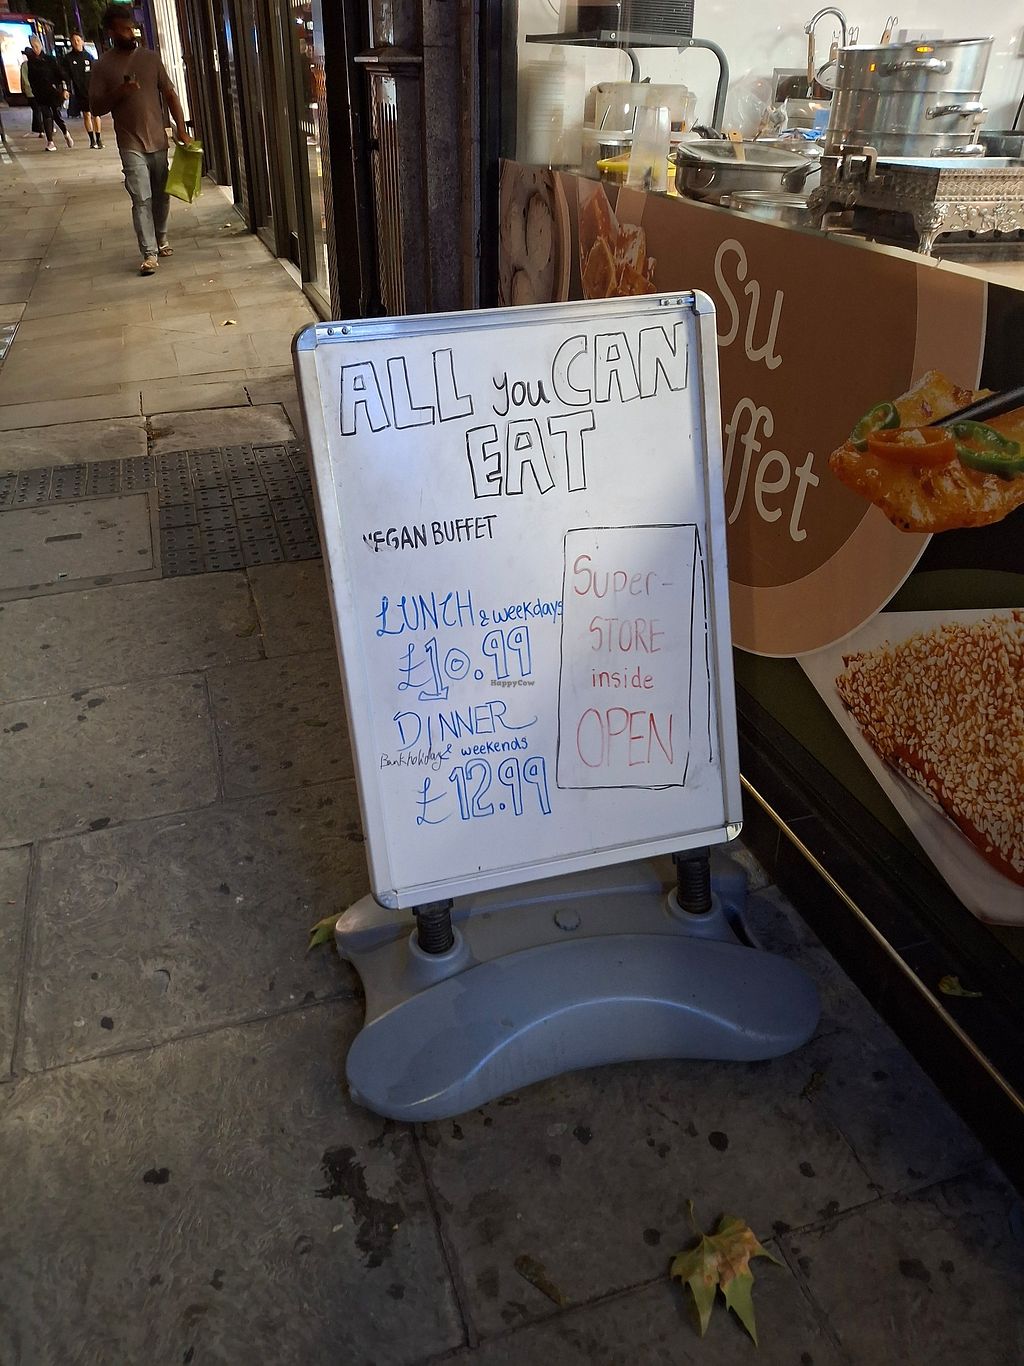 ALL you CAN
EAT
VEGAN BUFFET
LUNCH & weekdays
£10.99
DINNER
Bankholidays & weekends
£12.99
Super-
STORE
inside
OPEN
HappyCow
Su
ffet